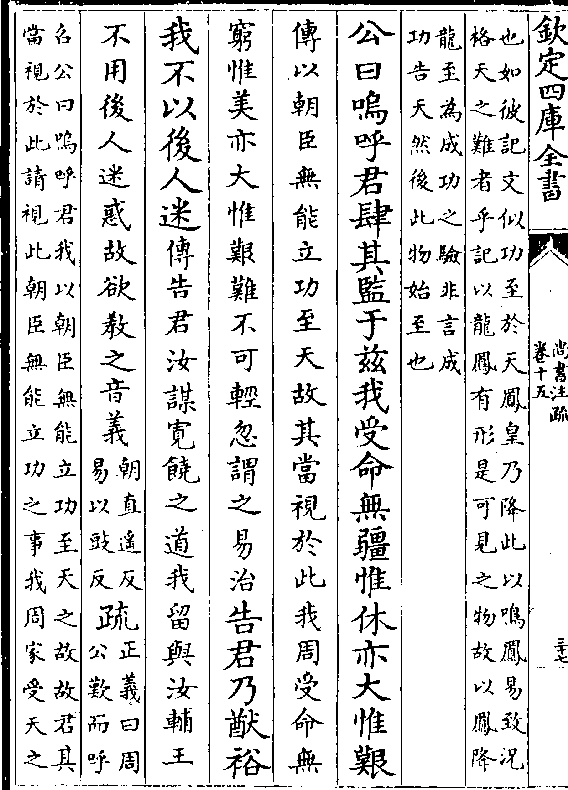 欽定四庫全書
尚書注疏
卷十五
三十七
也如彼記文似功至於天鳳皇乃降此以鳴鳳易致況
格天之難者乎記以龍鳳有形是可見之物故以鳳降
龍至為成功之驗非言成
功告天然後此物始至也
公曰嗚呼君肆其監于兹我受命無疆惟休亦大惟艱
傳以朝臣無能立功至天故其當視於此我周受命無
窮惟美亦大惟艱難不可輕忽謂之易治告君乃猷裕
我不以後人迷傳告君汝謀寛饒之道我留與汝輔王
不用後人迷惑故欲教之音義朝直遥反易以豉反疏正義曰周公歎而呼
名公曰嗚呼君我以朝臣無能立功至天之故故君其
當視於此請視此朝臣無能立功之事我周家受天之